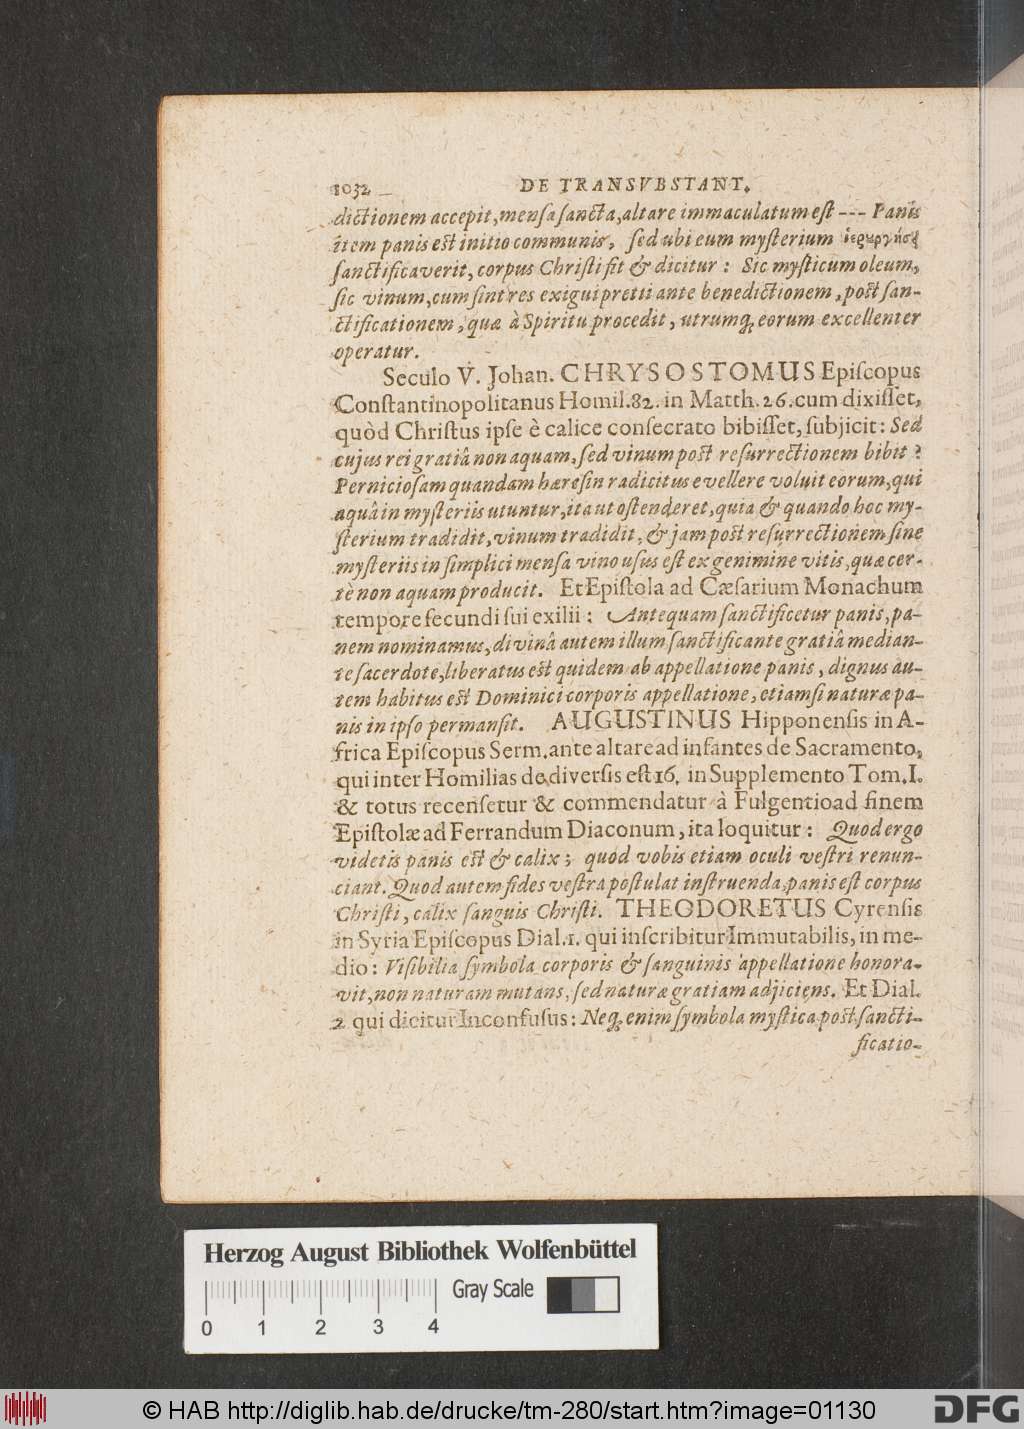 1032 DE TRANSVBSTANT.
dictionem accepit, mensa sancta, altare immaculatum est --- Panis
item panis est initio communis, sed ubi eum mysterium
sanctificaverit, corpus Christi fit & dicitur: Sic mysticum oleum,
sic vinum, cum sint res exigui pretii ante benedictionem, post san-
ctificationem, quæ à Spiritu procedit, utrumq; eorum excellenter
operatur.
Seculo V. Johan. CHRYSOSTOMUS Episcopus
Constantinopolitanus Homil. 82. in Matth. 26. cum dixisset,
quòd Christus ipse è calice consecrato bibisset, subjicit: Sed
cujus rei gratiâ non aquam, sed vinum post resurrectionem bibit?
Perniciosam quandam hæresin radicitus evellere voluit eorum, qui
aquâ in mysteriis utuntur, ita ut ostenderet, quia & quando hoc my-
sterium tradidit, vinum tradidit, & jam post resurrectionem sine
mysteriis in simplici mensa vino usus est ex genimine vitis, quæ cer-
tè non aquam producit. Et Epistola ad Cæsarium Monachum
tempore secundi sui exilii: Antequam sanctificetur panis, pa-
nem nominamus, divinâ autem illum sanctificante gratiâ median-
te sacerdote, liberatus est quidem ab appellatione panis, dignus au-
tem habitus est Dominici corporis appellatione, etiamsi naturæ pa-
nis in ipso permansit. AUGUSTINUS Hipponensis in A-
frica Episcopus Serm. ante altare ad infantes de Sacramento,
qui inter Homilias de diversis est 16. in Supplemento Tom. I.
& totus recensetur & commendatur à Fulgentio ad finem
Epistolæ ad Ferrandum Diaconum, ita loquitur: Quod ergo
videtis panis est & calix; quod vobis etiam oculi vestri renun-
ciant. Quod autem fides vestra postulat instruenda, panis est corpus
Christi, calix sanguis Christi. THEODORETUS Cyrensis
in Syria Episcopus Dial. 1. qui inscribitur Immutabilis, in me-
dio: Visibilia symbola corporis & sanguinis appellatione honora-
vit, non naturam mutans, sed naturæ gratiam adjiciens. Et Dial.
2 qui dicitur Inconfusus: Neq; enim symbola mystica post sancti-
ficatio-
Herzog August Bibliothek Wolfenbüttel
Gray Scale
0 1 2 3 4
© HAB http://diglib.hab.de/drucke/tm-280/start.htm?image=01130
DFG